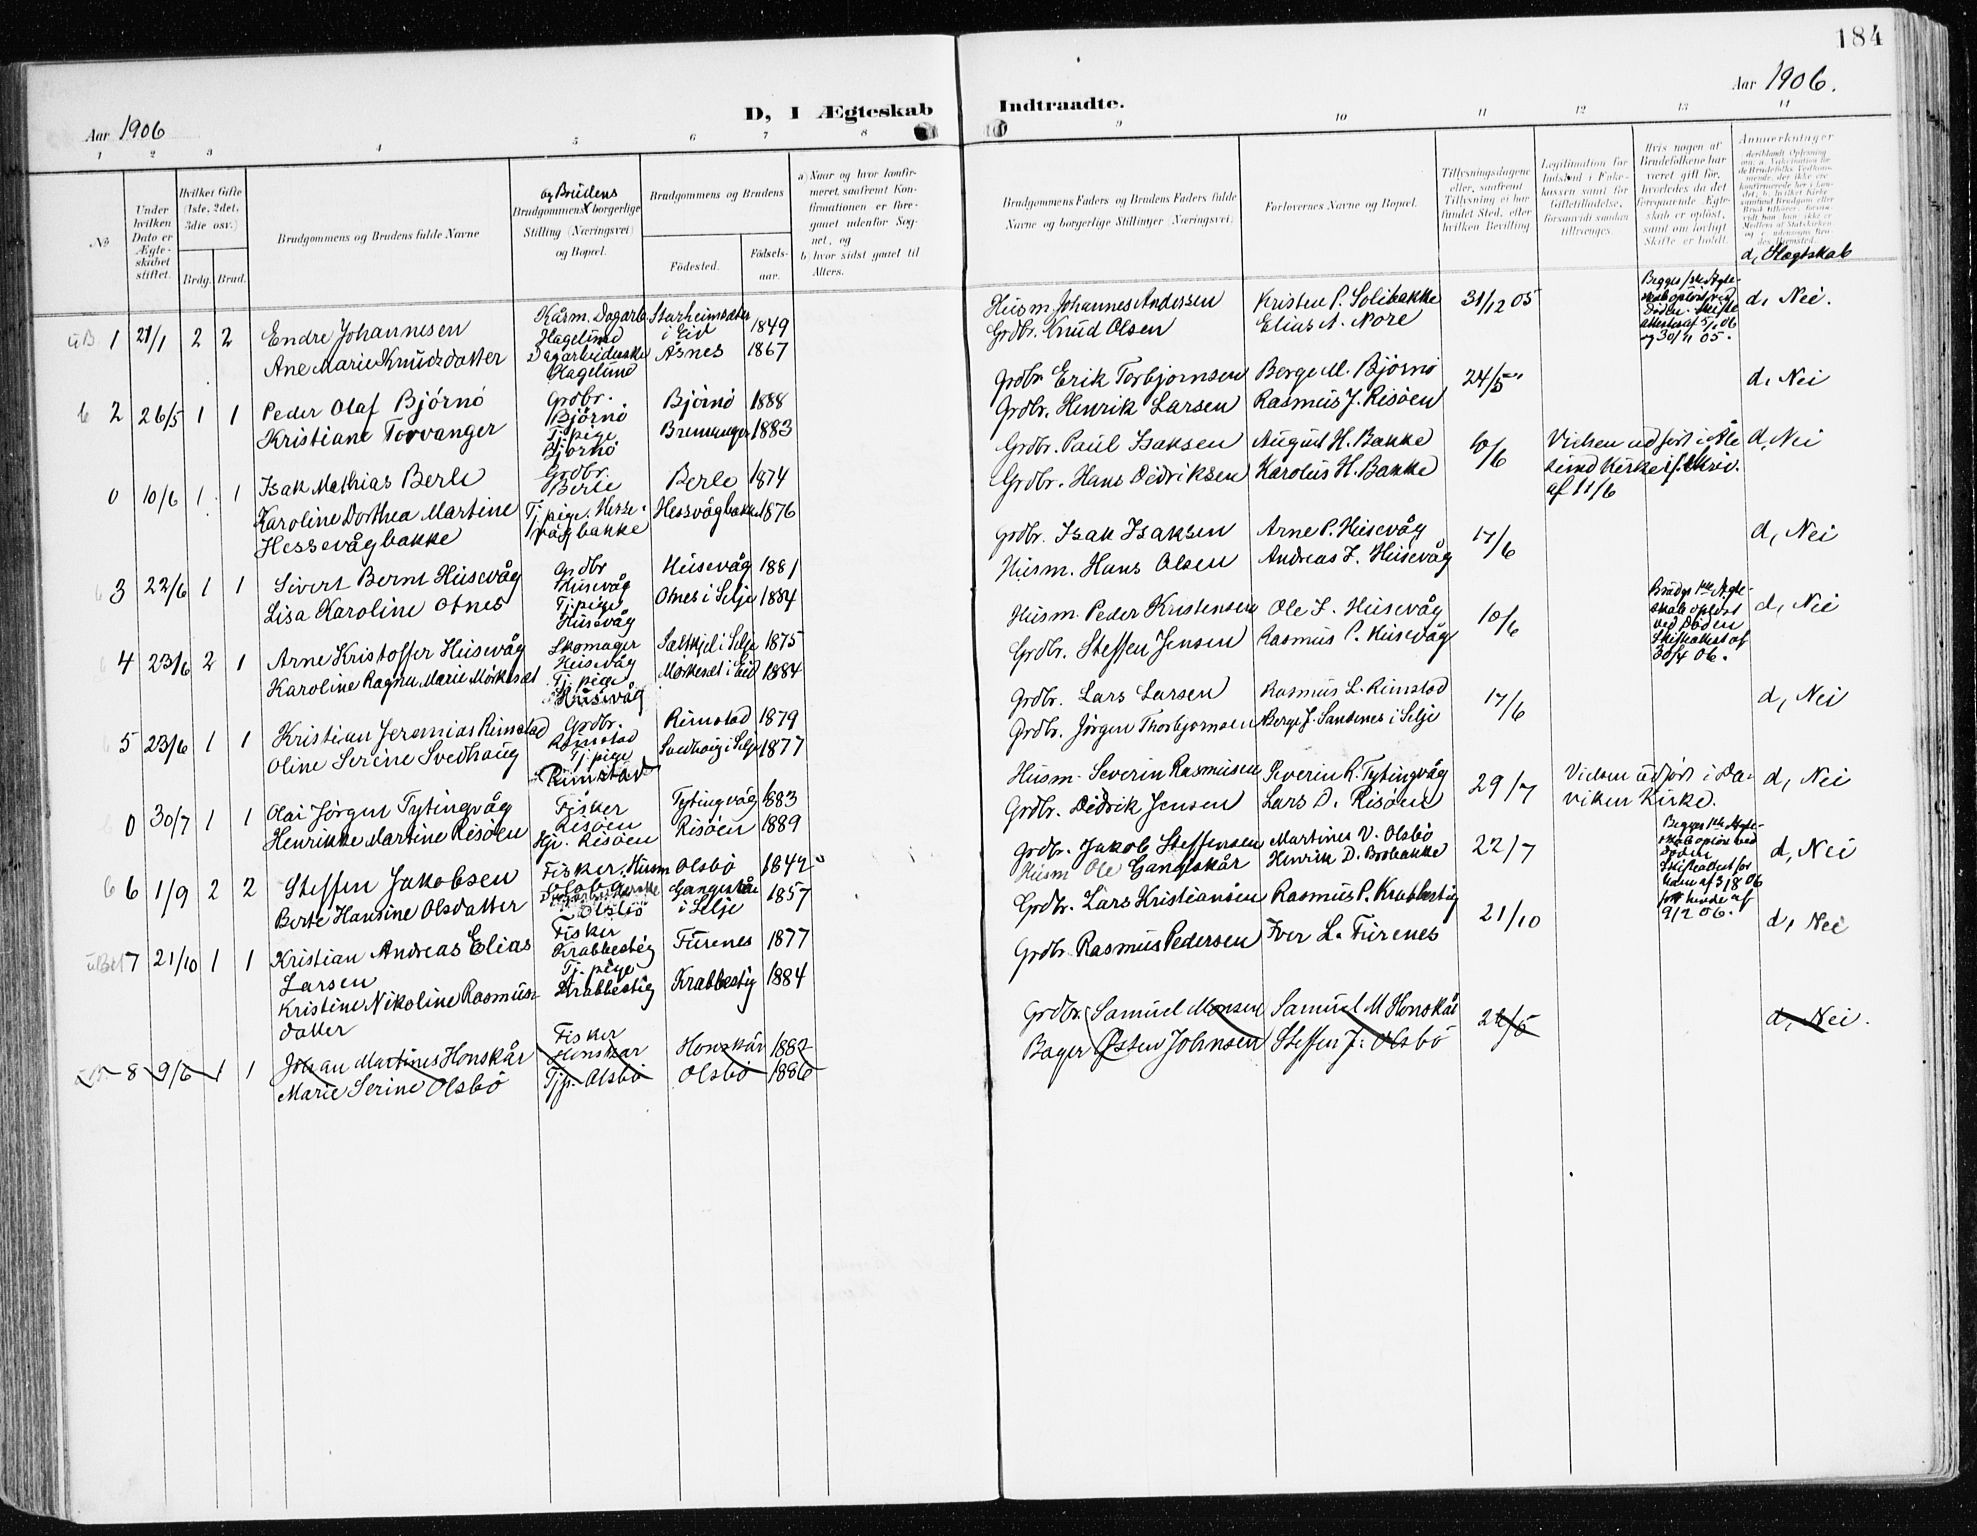 184
Aar 1906
D, I Ægteskab
Indtraadte.
Aar 1906.
1 2 3 4 5 6 7 8 9 10 11 12 13 14
No
Under hvilken Dato er Ægteskabet stiftet.
Hvilket Gifte (1ste, 2det, 3die osv.)
Brdg. Brud.
Brudgommens og Brudens fulde Navne
og Brudens
Brudgommens borgerlige Stilling (Næringsvei) og Bopæl.
Brudgommens og Brudens
Fødested.
Fødselsaar.
a) Naar og hvor konfirmeret, saafremt Konfirmationen er foregaaet udenfor Sognet, og
b) hvor sidst gaaet til Alters.
Brudgommens Faders og Brudens Faders fulde Navne og borgerlige Stillinger (Næringsvei)
Forlovernes Navne og Bopæl.
Tillysningsdagene eller, saafremt Tillysning ei har fundet Sted, efter hvilken Bevilling
Legitimation for Indskud i Enkekassen samt for Giftetilladelse, forsaavidt saadan tiltrænges
Hvis nogen af Brudefolkene har været gift før, hvorledes da det foregaaende Ægteskab er opløst, samt om lovligt Skifte er holdt.
Anmerkninger
d, Slegtskab
1 21/1 2 2 Endre Johannesen
Ane Marie Knudsdatter
Kårm. Dagarb.
Hagelund
Dagarbeiderske
Hagelund
Starheimsæter i Eid 1849
Åsnes 1867
Husm. Johannes Andersen
Grdbr. Knud Olsen
Kristen P. Solibakke
Elias A. Nore
31/12 05
Begges 1ste Ægteskab opløst ved Døden. Skifteattester af 5/1 06 og 30/11 05.
d, Nei.
6 2 26/5 1 1 Peder Olaf Bjørnø
Kristiane Torvanger
Grdbr.
Bjørnø
Tj.pige
Bjørnø
Bjørnø 1888
Bremanger 1883
Grdbr. Erik Torbjørnsen
Grdbr. Henrik Larsen
Berge M. Bjørnø
Rasmus J. Risøen
24/5
d, Nei
0 10/6 1 1 Isak Mathias Berle
Karoline Dorthea Martine
Hessevågbakke
Grdbr.
Berle
Tj.pige. Hessevågbakke
Berle 1874
Hessvågbakke 1876
Grdbr. Paul Isaksen
Grdbr. Hans Didriksen
August H. Bakke
Karolus H. Bakke
10/6
Vielsen udført i Ålesund Kirke if. Skriv. af 11/6
d, Nei
3 22/6 1 1 Sivert Bernt Husevåg
Lisa Karoline Otnes
Grdbr
Husevåg
Tj.pige
Husevåg
Husevåg 1881
Otnes i Selje 1884
Grdbr. Isak Isaksen
Husm. Hans Olsen
Arne P. Husevåg
Andreas I. Husevåg
17/6
d, Nei
4 23/6 2 1 Arne Kristoffer Husevåg
Karoline Ragna Marie Mørkesæt
Skomager
Husevåg
Tj.pige
Husevåg
Saltkjel i Selje 1875
Mørkesæt i Eid 1884
Husm. Peder Kristensen
Grdbr. Steffen Jensen
Ole I. Husevåg
Rasmus P. Husevåg
10/6
Brudgs 1ste Ægteskab opløst ved Døden Skifteattest af 30/4 06.
d, Nei
5 23/6 1 1 Kristian Jeremias Rimstad
Oline Serine Svedhaug
Grdbr.
Rimstad
Tj.pige
Rimstad
Rimstad 1879
Svedhaug i Selje 1877
Grdbr. Lars Larsen
Grdbr. Jørgen Thorbjørnsen
Rasmus L. Rimstad
Berge J. Sandenes i Selje
17/6
d, Nei
0 30/7 1 1 Olai Jørgen Tytingvåg
Henrikke Martine Risøen
Fisker
Risøen
Hj. Risøen
Tytingvåg 1883
Risøen 1889
Husm. Severin Rasmusen
Grdbr. Didrik Jensen
Severin R. Tytingvåg
Lars D. Risøen
29/7
Vielsen udført i Daviken Kirke.
d, Nei
6 6 1/9 2 2 Steffen Jakobsen
Berte Hansine Olsdatter
Fisker, Husm
Olsbø
Olsbø
Olsbø 1842
Gangeskår i Selje 1857
Grdbr. Jakob Steffensen
Husm Ole Gangeskår
Martines V. Olsbø
Henrik D. Brobakke
22/7
Begges 1ste Ægteskab opløst ved Døden Skifteattest for ham af 3/8 06 for hende af 9/2 06.
d, Nei
7 21/10 1 1 Kristian Andreas Elias
Larsen
Kristine Nikoline Rasmusdatter
Fisker
Krabbestig
Tj.pige
Krabbestig
Furenes 1877
Krabbestig 1884
Grdbr. Lars Kristiansen
Grdbr. Rasmus Pedersen
Rasmus P. Krabbestig
Iver L. Furenes
21/10
d, Nei
8 9/6 1 1 Johan Martines Honskår
Marie Serine Olsbø
Fisker
Honskår
Tjp. Olsbø
Honskår 1882
Olsbø 1886
Grdbr. Samuel Monsen
Bager Østen Johnsen
Samuel M Honskår
Steffen J. Olsbø
24/5
d, Nei.